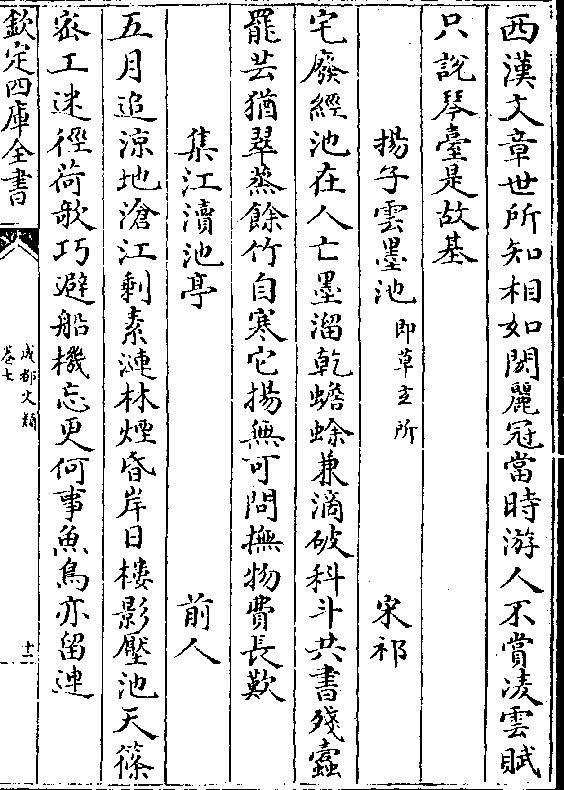 西漢文章世所知相如閎麗冠當時游人不賞凌雲賦
只說琴臺是故基
揚子雲墨池即草玄所 宋祁
宅廢經池在人亡墨溜乾蟾蜍兼滴破科斗共書殘蠹
罷芸猶翠蒸餘竹自寒它揚無可問撫物費長歎
集江瀆池亭 前人
五月追涼地滄江剩素漣林煙昏岸日樓影壓池天篠
密工迷徑荷欹巧避船機忘更何事魚鳥亦留連
欽定四庫全書 成都文類 卷七 十二